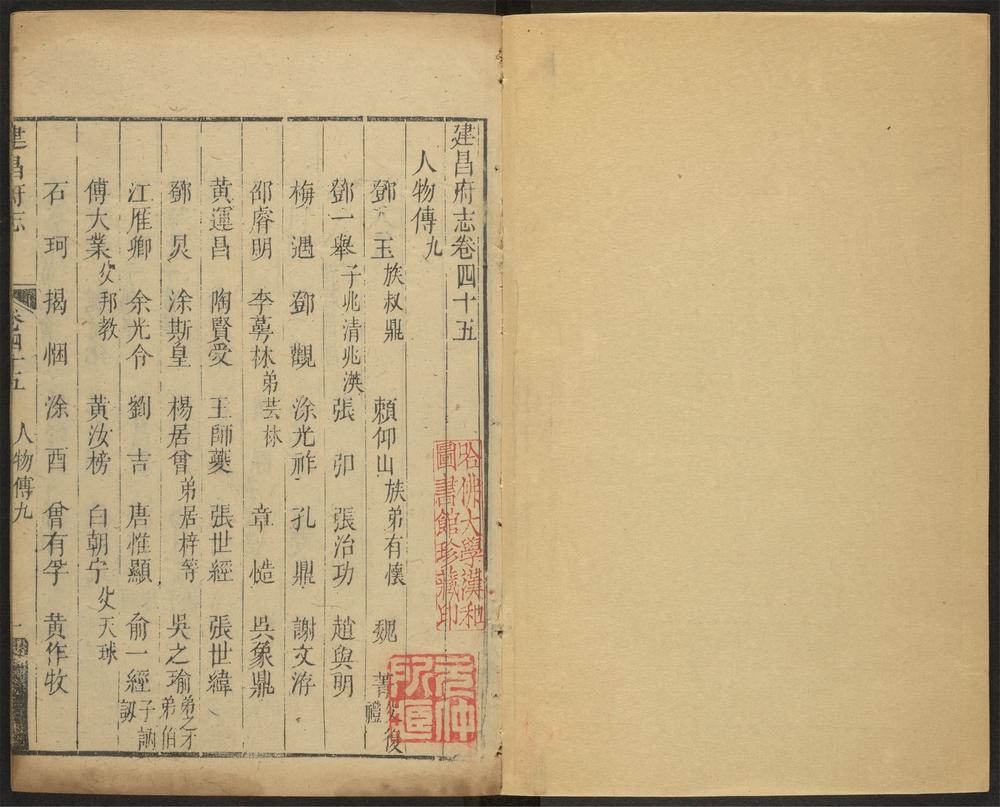 建昌府志卷四十五
人物傳九
鄧玉 族叔鼎 賴仰山 族弟有懷 魏菁 父復禮
鄧一舉 子兆清兆漢 張卬 張治功 趙與明
梅遇 鄧觀 涂光祚 孔鼎 謝文洊
邵睿明 李萼林 弟芸林 章慥 吳象鼎
黃運昌 陶賢受 王師夔 張世經 張世緯
鄧炅 涂斯皇 楊居曾 弟居梓等 吳之瑜 弟之才弟伯
江雁卿 余光令 劉吉 唐惟顯 俞一經 子訥
傅大業 父邦教 黃汝榜 白朝宁 父天球
石珂 揭悃 涂酉 曾有孚 黃作牧
建昌府志 卷四十五 人物傳九 一
哈佛大學漢和
圖書館珍藏印